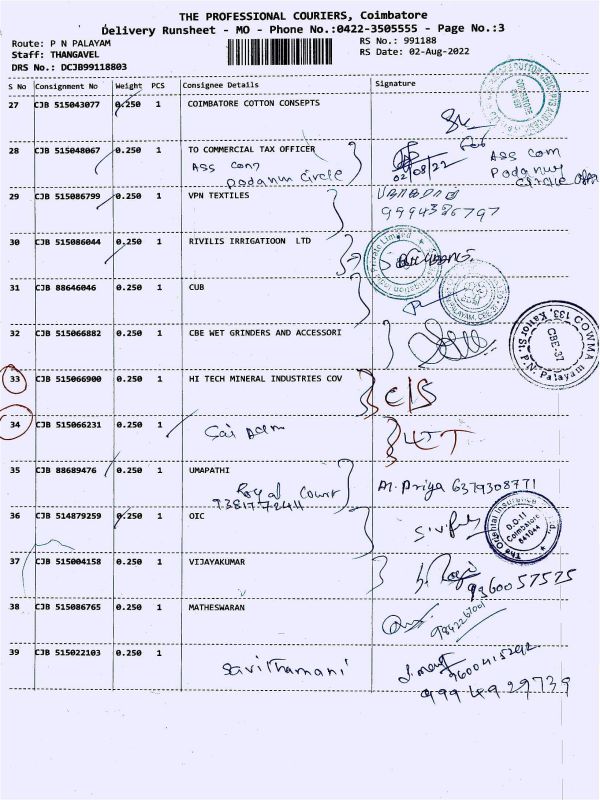 THE PROFESSIONAL COURIERS, Coimbatore
Delivery Runsheet - MO - Phone No.:0422-3505555 - Page No.:3
Route: P N PALAYAM
RS No.: 991188
Staff: THANGAVEL
RS Date: 02-Aug-2022
DRS No.: DCJB99118803
S No Consignment No Weight PCS Consignee Details Signature
27 CJB 515043077 0.250 1 COIMBATORE COTTON CONSEPTS
28 CJB 515048067 0.250 1 TO COMMERCIAL TAX OFFICER
ASS Com
Podanur Circle
02/08/22
ASS Com
Podanur
Circle
29 CJB 515086799 0.250 1 VPN TEXTILES
30 CJB 515086044 0.250 1 RIVILIS IRRIGATIOON LTD
31 CJB 88646046 0.250 1 CUB
32 CJB 515066882 0.250 1 CBE WET GRINDERS AND ACCESSORI
COWMA
133, Kannor St, P.N. Palayam
CBE-37
33 CJB 515066900 0.250 1 HI TECH MINERAL INDUSTRIES COV
C/S
34 CJB 515066231 0.250 1
Sai
35 CJB 88689476 0.250 1 UMAPATHI
Royal Court
M. Priya 6379308771
36 CJB 514879259 0.250 1 OIC
The Oriental Insurance
D.O-II
Coimbatore
641044
37 CJB 515004158 0.250 1 VIJAYAKUMAR
9360057525
38 CJB 515086765 0.250 1 MATHESWARAN
39 CJB 515022103 0.250 1 Savithamani
9994929739